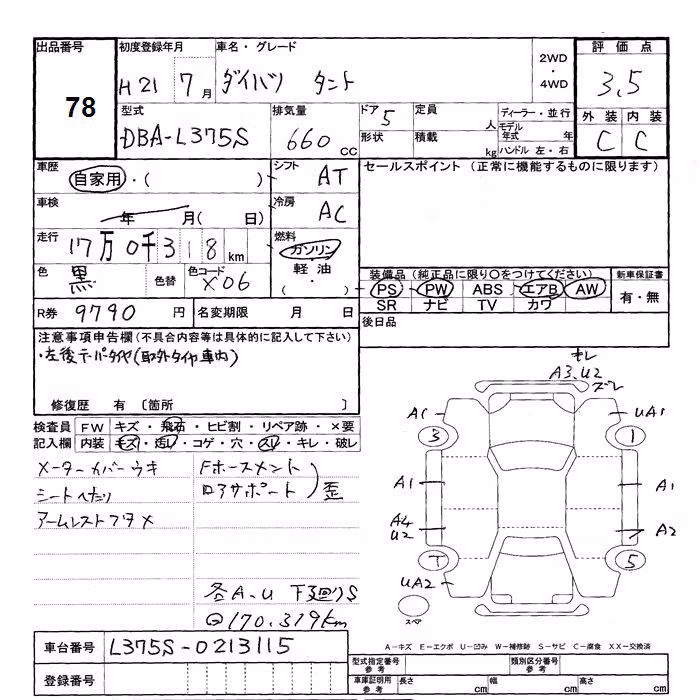 出品番号 78
初度登録年月 H21 7月
車名・グレード ダイハツ タント
2WD・4WD
評価点 3.5
外装 C 内装 C
型式 DBA-L375S
排気量 660 cc
ドア 5 形状
定員 人 積載 kg
ディーラー・並行
モデル年式 年
ハンドル 左・右
車歴 自家用・( )
シフト AT
セールスポイント(正常に機能するものに限ります)
車検 年 月( 日)
冷房 AC
走行 17万0千318km
燃料 ガソリン・軽油・( )
色 黒 色替 色コード X06
装備品(純正品に限り○をつけてください)
PS PW ABS エアB AW
SR ナビ TV カワ
新車保証書 有・無
R券 9790円 名変期限 月 日
後日品
注意事項申告欄(不具合内容等は具体的に記入して下さい)
・左後テーパータイヤ(取外タイヤ車内)
修復歴 有 〔箇所 〕
検査員記入欄
FW キズ・飛石・ヒビ割・リペア跡・×要
内装 キズ・汚レ・コゲ・穴・スレ・キレ・破レ
メーターカバーウキ
シートヘタリ
アームレストフタメ
Fホースメント
ロアサポート)歪
各A.U 下廻りS
170.319km
A3,U2 ズレ
A1 3 UA1 1
A1 A1
A4 U2 A2
T 5
UA2
スペア
A-キズ E-エクボ U-凹み W-補修跡 S-サビ C-腐食 XX-交換済
車台番号 L375S-0213115
登録番号
型式指定番号 参考 類別区分番号 参考
車庫証明用 参考 長さ cm 幅 cm 高さ cm